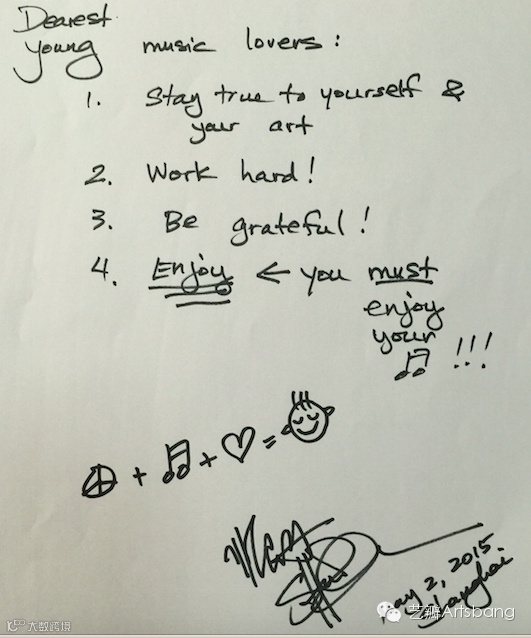 Dearest
young music lovers:
1. Stay true to yourself &
your art
2. Work hard!
3. Be grateful!
4. Enjoy ← you must
enjoy
your
♫ !!!
☮ + ♫ + ♡ =
May 2, 2015
Shanghai
艺瓣Artsbang
大数跨境